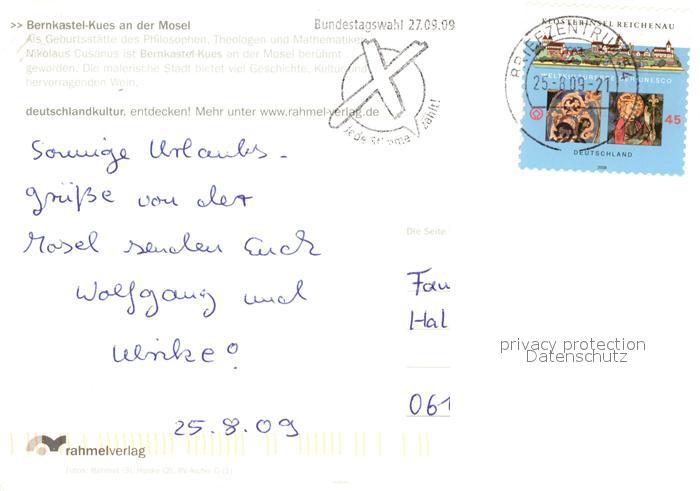 >> Bernkastel-Kues an der Mosel
Als Geburtsstätte des Philosophen, Theologen und Mathematikers
Nikolaus Cusanus ist Bernkastel-Kues an der Mosel berühmt
geworden. Die malerische Stadt bietet viel Geschichte, Kultur und
hervorragenden Wein.
deutschlandkultur. entdecken! Mehr unter www.rahmel-verlag.de
Bundestagswahl 27.09.09
Jede Stimme zählt!
KLOSTERINSEL REICHENAU
BRIEFZENTRUM
25.-8.09-21
WELTKULTURERBE DER UNESCO
45
DEUTSCHLAND
2008
Sonnige Urlaubs-
grüße von der
Mosel senden Euch
Wolfgang und
Ulrike!
25.8.09
Die Seite
Fam
Hal
061
privacy protection
Datenschutz
rahmelverlag
Fotos: Rahmel (3), Hanke (2), RV-Archiv G (1)